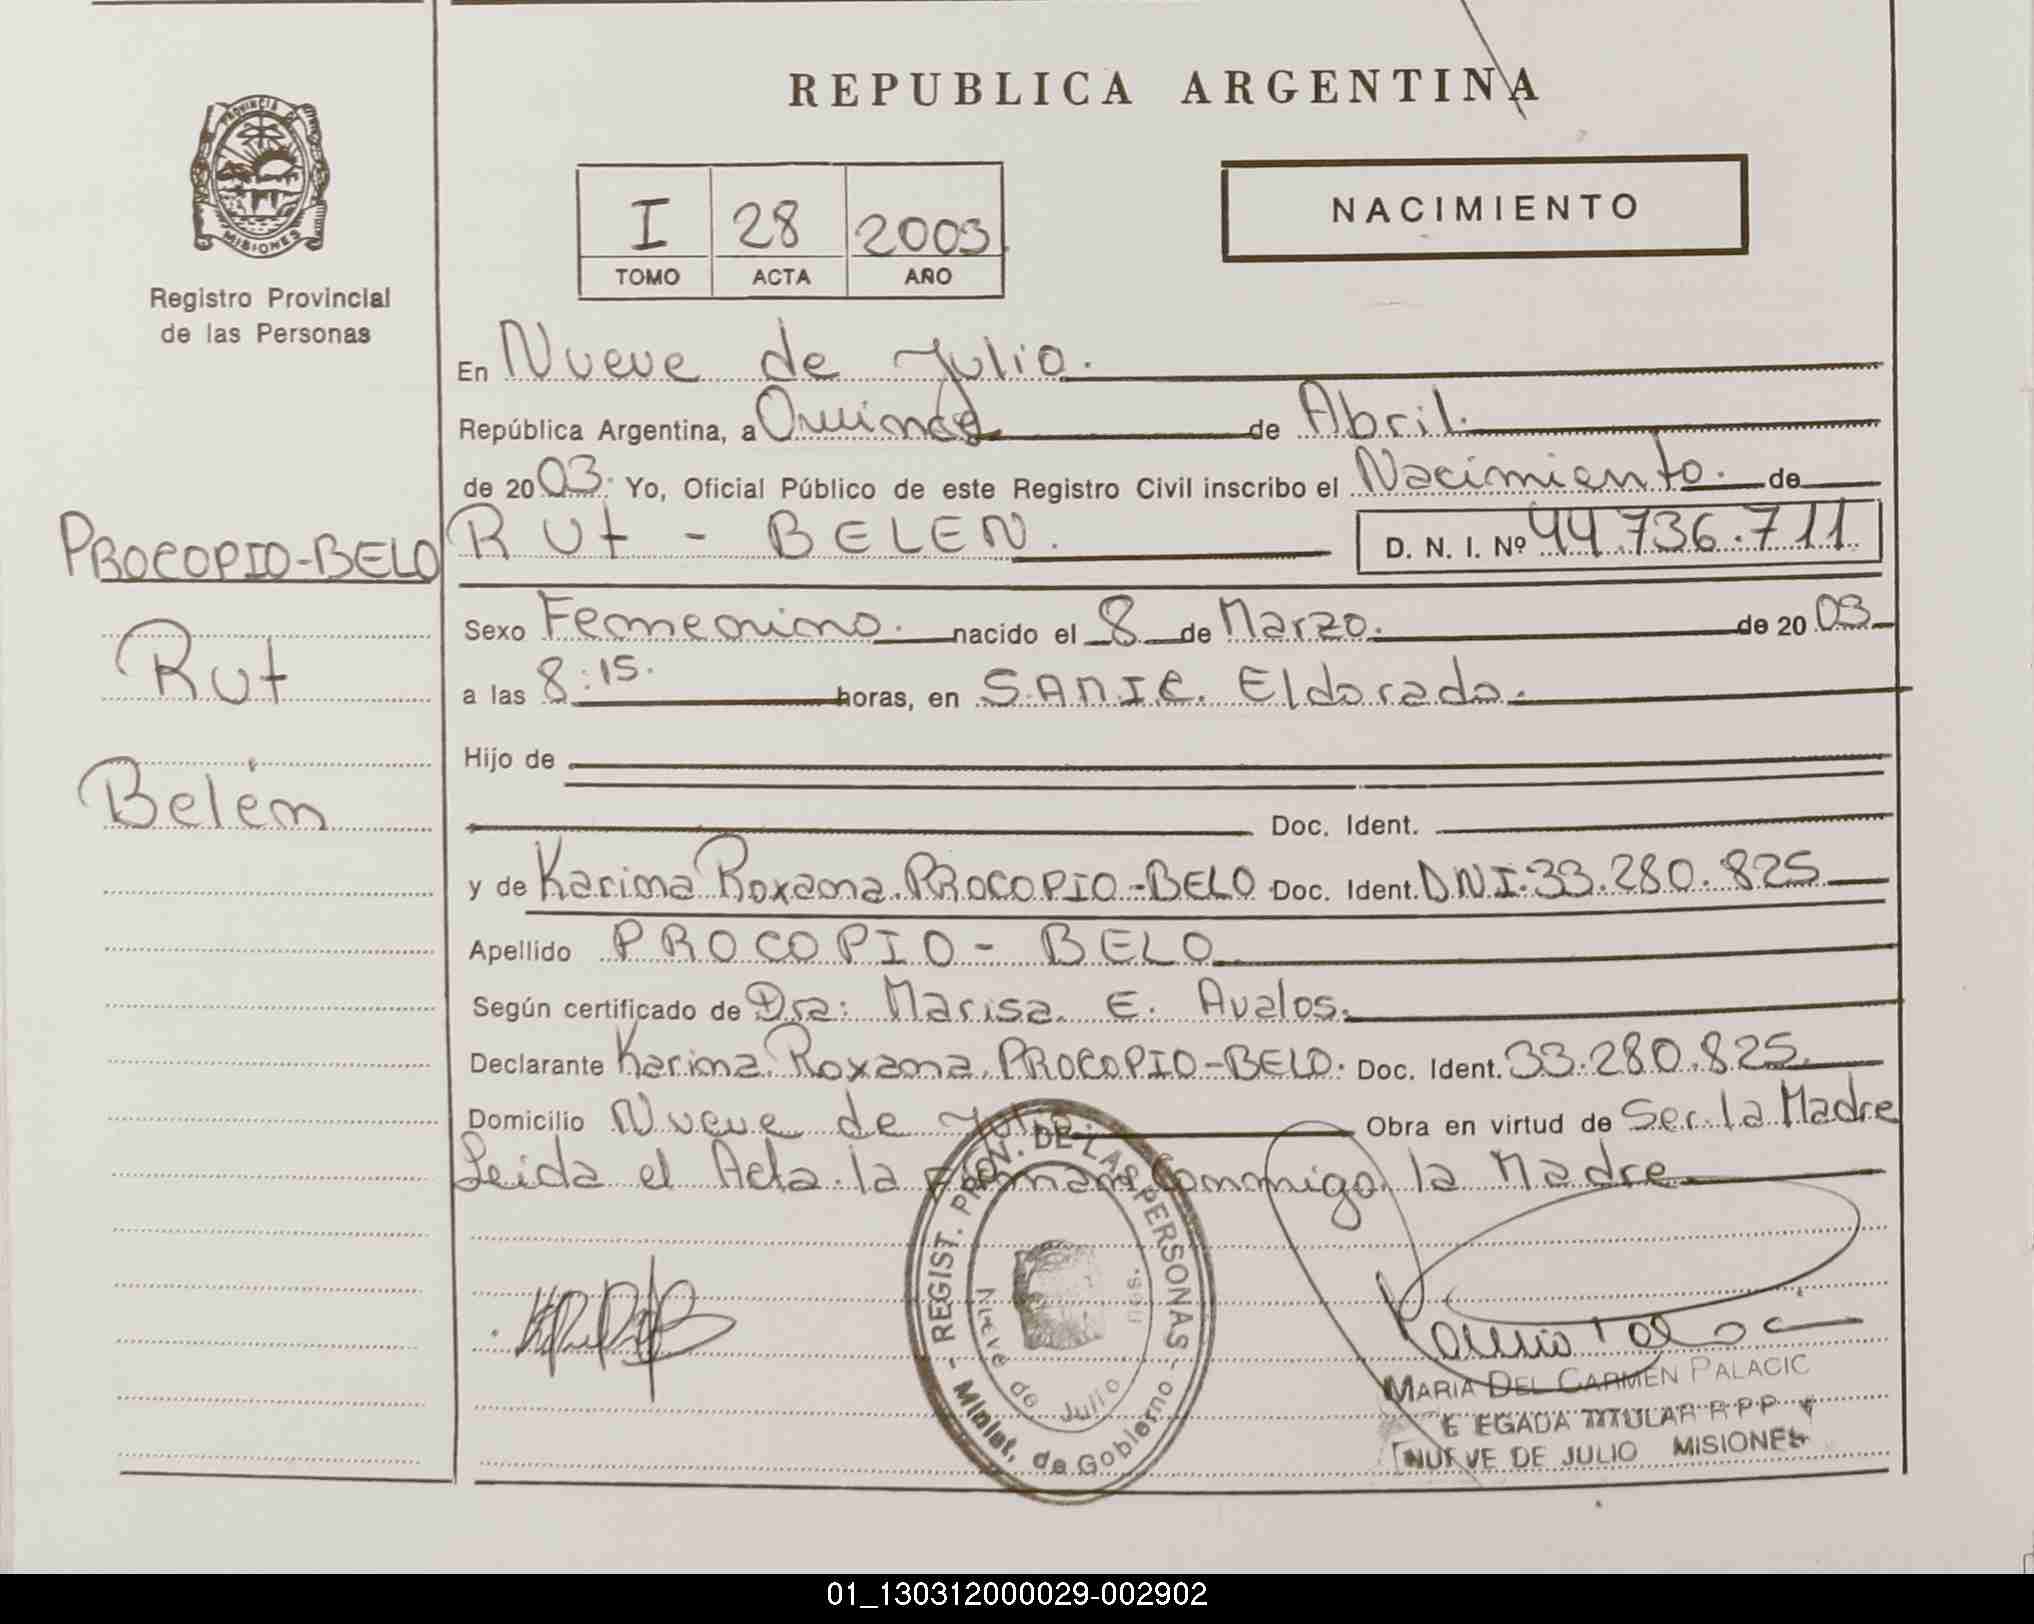 REPUBLICA ARGENTINA
PROVINCIA DE
MISIONES
Registro Provincial
de las Personas
I 28 2003
TOMO ACTA AÑO
NACIMIENTO
En Nueve de Julio.
República Argentina, a Quince de Abril.
de 2003. Yo, Oficial Público de este Registro Civil inscribo el Nacimiento. de
PROCOPIO-BELO
Rut
Belén
RUt - BELEN. D. N. I. Nº 44.736.711
Sexo Femenino. nacido el 8 de Marzo. de 2003
a las 8:15. horas, en S.A.M.I.C. Eldorado.
Hijo de
Doc. Ident.
y de Karina Roxana PROCOPIO-BELO Doc. Ident. DNI: 33.280.825
Apellido PROCOPIO - BELO
Según certificado de Dra: Marisa E. Avalos.
Declarante Karina Roxana PROCOPIO-BELO. Doc. Ident. 33.280.825
Domicilio Nueve de Julio Obra en virtud de Ser la Madre
Leida el Acta la firman Conmigo la Madre
REGIST. PROV. DE LAS PERSONAS
Nueve de Julio Mnes.
Minist. de Gobierno
MARIA DEL CARMEN PALACIO
TITULAR R P P
NUEVE DE JULIO MISIONES
01_130312000029-002902